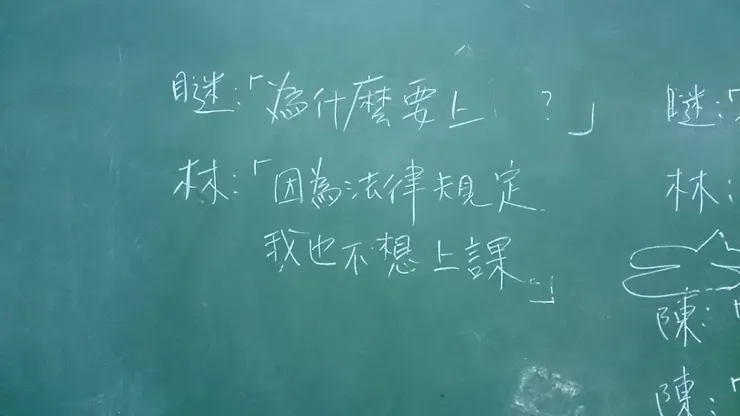 瞇:「為什麼要上 ?」
林:「因為法律規定
我也不想上課。」
瞇:「
林:
陳:「
陳:「